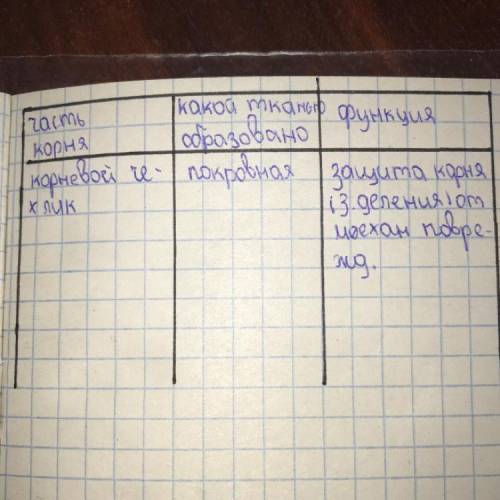 часть
корня
какой тканью
образовано
функция
корневой че-
хлик
покровная
защита корня
(з. деления) от
механ повре-
жд.